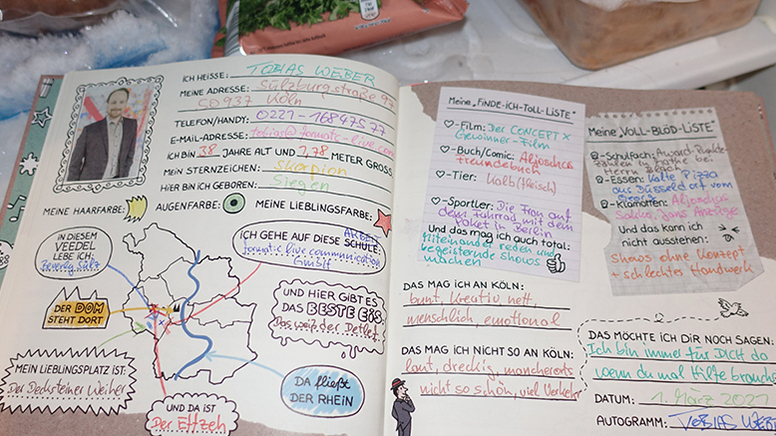 ICH HEISSE: TOBIAS WEBER
MEINE ADRESSE: Sülzburgstraße 97
50937 Köln
TELEFON/HANDY: 0221-16847577
E-MAIL-ADRESSE: tobias@formatc-live.com
ICH BIN 38 JAHRE ALT UND 1,78 METER GROSS
MEIN STERNZEICHEN: Skorpion
HIER BIN ICH GEBOREN: Siegen
MEINE HAARFARBE: AUGENFARBE: MEINE LIEBLINGSFARBE:
IN DIESEM
VEEDEL
LEBE ICH:
Sülz
ICH GEHE AUF DIESE SCHULE:
live communication
GmbH
DER DOM
STEHT DORT
UND HIER GIBT ES
DAS BESTE EIS:
Das weiß der Detlef
MEIN LIEBLINGSPLATZ IST:
Der Decksteiner Weiher
UND DA IST
Der Effzeh
DA fließt
DER RHEIN
Meine „FINDE-ICH-TOLL-LISTE"
-Film: Der CONCEPT X
Gewinner-Film
-Buch/Comic: Aljoscha
freundebuch
-Tier: Kalb(fleisch)
-Sportler: Die Frau auf
dem Fahrrad mit dem
Paket in Berlin
Und das mag ich auch total:
Miteinander reden und
begeisternde Shows
machen
DAS MAG ICH AN KÖLN:
bunt, kreativ, nett,
menschlich, emotional
DAS MAG ICH NICHT SO AN KÖLN:
laut, dreckig, mancherorts
nicht so schön, viel Verkehr
Meine „VOLL-BLÖD-LISTE"
-Schulfach: Award Punkte
zählen in Mathe bei
Herrn
-Essen: Kalte Pizza
aus Düsseldorf vom
-Klamotten: Aljoschas
Anzüge
Und das kann ich
nicht ausstehen:
Shows ohne Konzept
+ schlechtes Handwerk
DAS MÖCHTE ICH DIR NOCH SAGEN:
Ich bin immer für Dich da
wenn du mal Hilfe brauchst
DATUM: 1. März 2021
AUTOGRAMM: TOBIAS WEBER